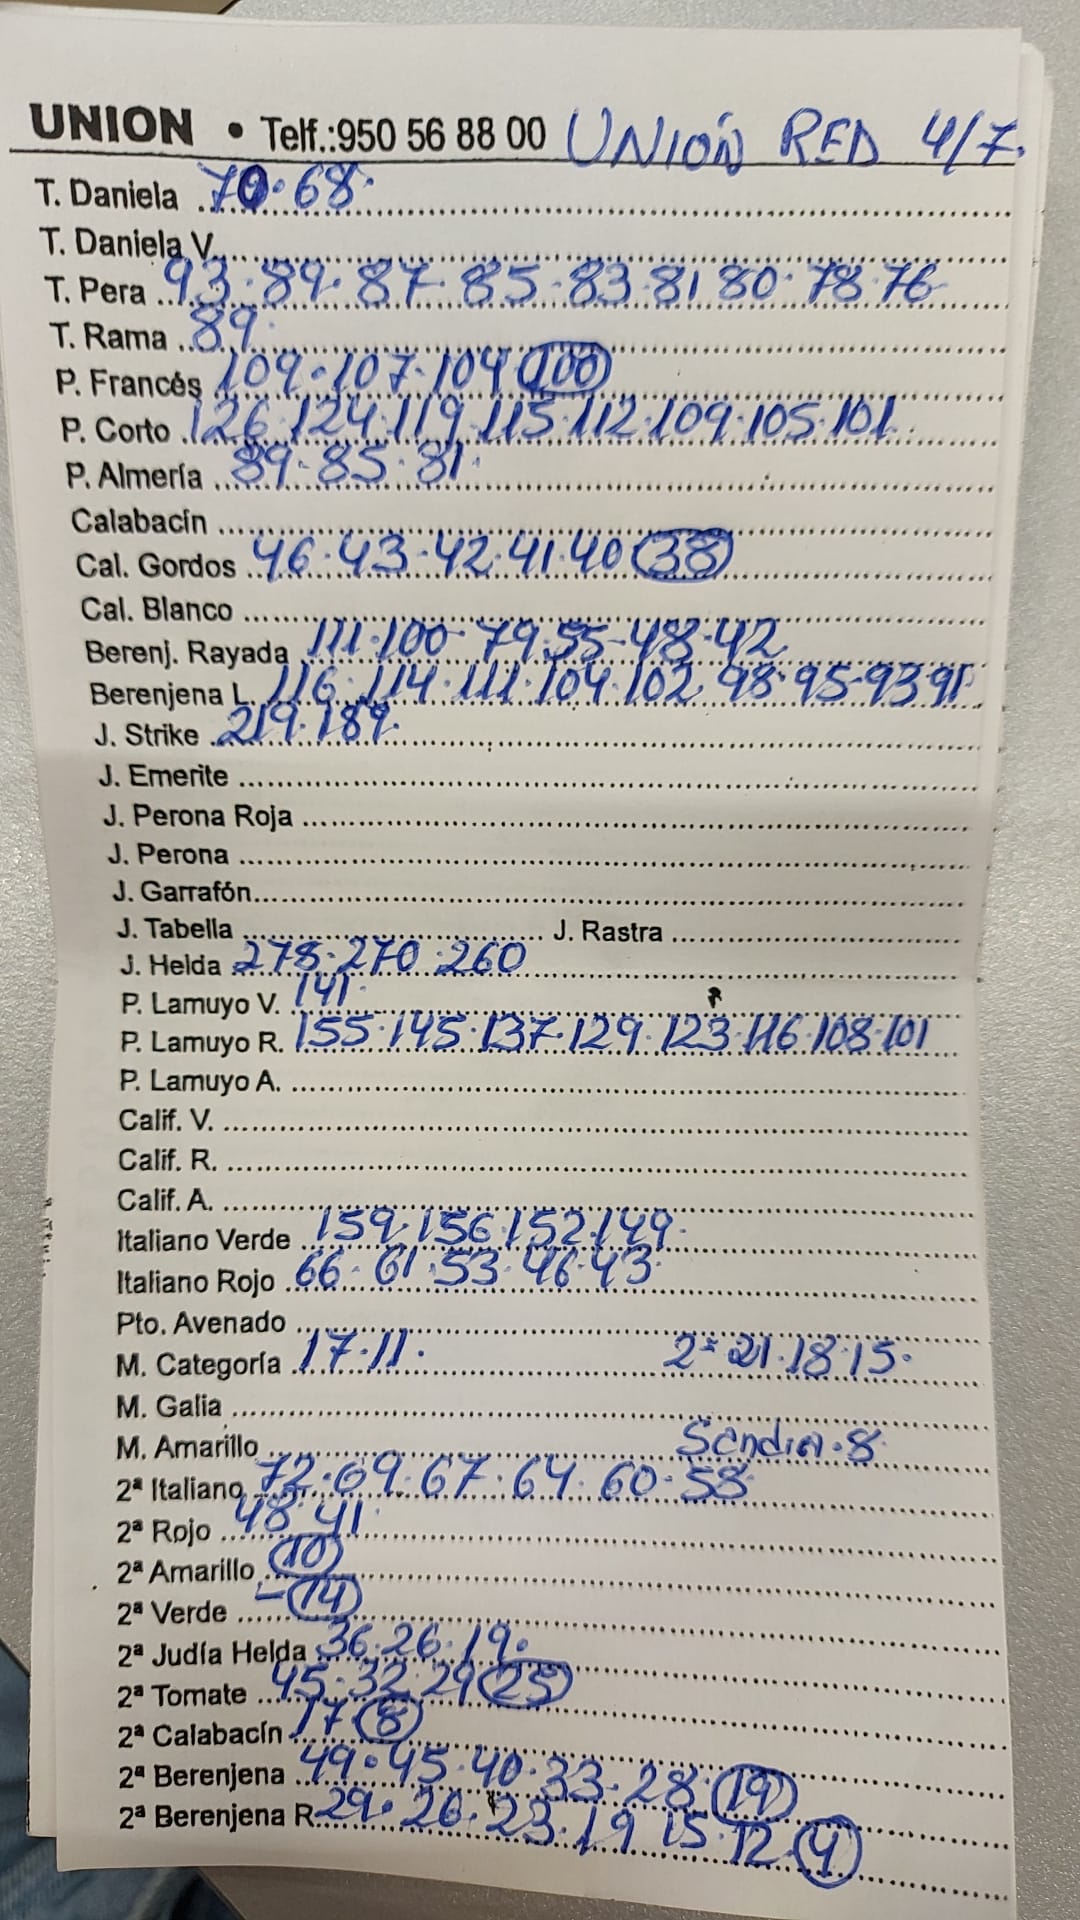 UNION • Telf.:950 56 88 00 UNIÓN RED 4/7.
T. Daniela 70.68.
T. Daniela V.
T. Pera 93.89.87.85.83.81.80.78.76
T. Rama 89.
P. Francés 109.107.104 100
P. Corto 126.124.119.115.112.109.105.101.
P. Almería 89.85.81.
Calabacín
Cal. Gordos 46.43.42.41.40 38
Cal. Blanco
Berenj. Rayada 111.100.79.55.48.42
Berenjena L. 116.114.111.104.102.98.95.93.91
J. Strike 219.189.
J. Emerite
J. Perona Roja
J. Perona
J. Garrafón
J. Tabella J. Rastra
J. Helda 278.270.260
P. Lamuyo V. 141.
P. Lamuyo R. 155.145.137.129.123.116.108.101
P. Lamuyo A.
Calif. V.
Calif. R.
Calif. A.
Italiano Verde 159.156.152.149.
Italiano Rojo 66.61.53.46.43.
Pto. Avenado
M. Categoría 17.11. 2ª 21.18.15.
M. Galia
M. Amarillo Sendia.8
2ª Italiano 72.69.67.64.60.58
2ª Rojo 48.41.
2ª Amarillo 10
2ª Verde - 14
2ª Judía Helda 36.26.19.
2ª Tomate 45.32.29 25
2ª Calabacín 17 8
2ª Berenjena 49.45.40.33.28. 19
2ª Berenjena R. 29.26.23.19.15.12. 4